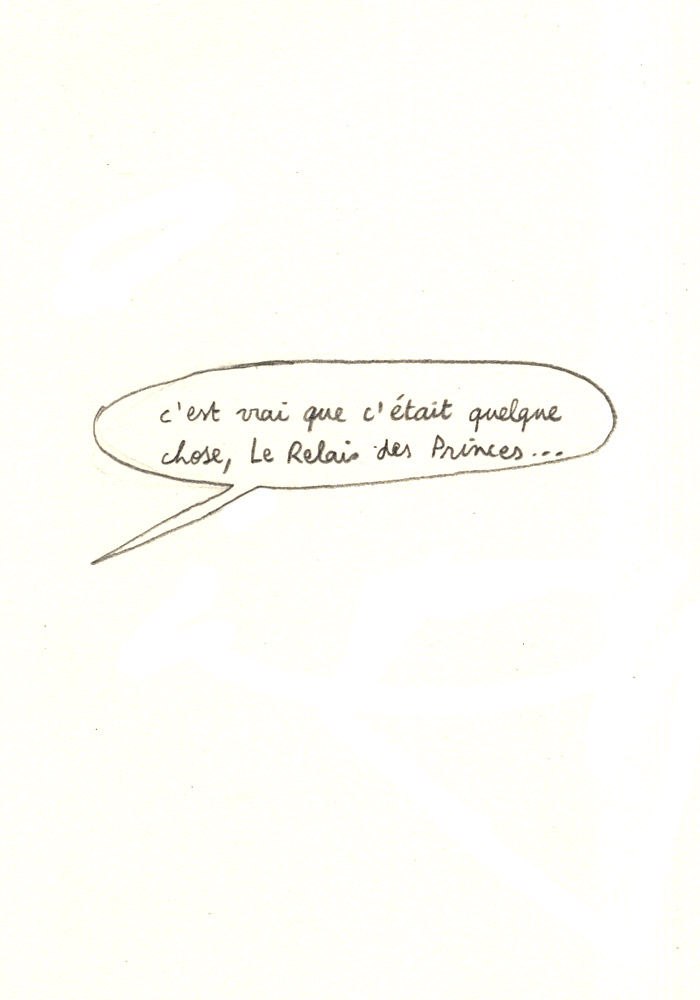 c'est vrai que c'était quelque
chose, Le Relais des Princes...